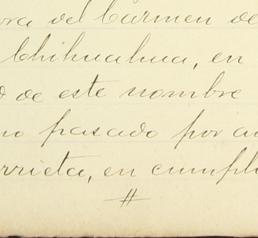 ora del Carmen de
Chihuahua, en
o de este nombre
no pasado por an
rrieta, en cumpli
#